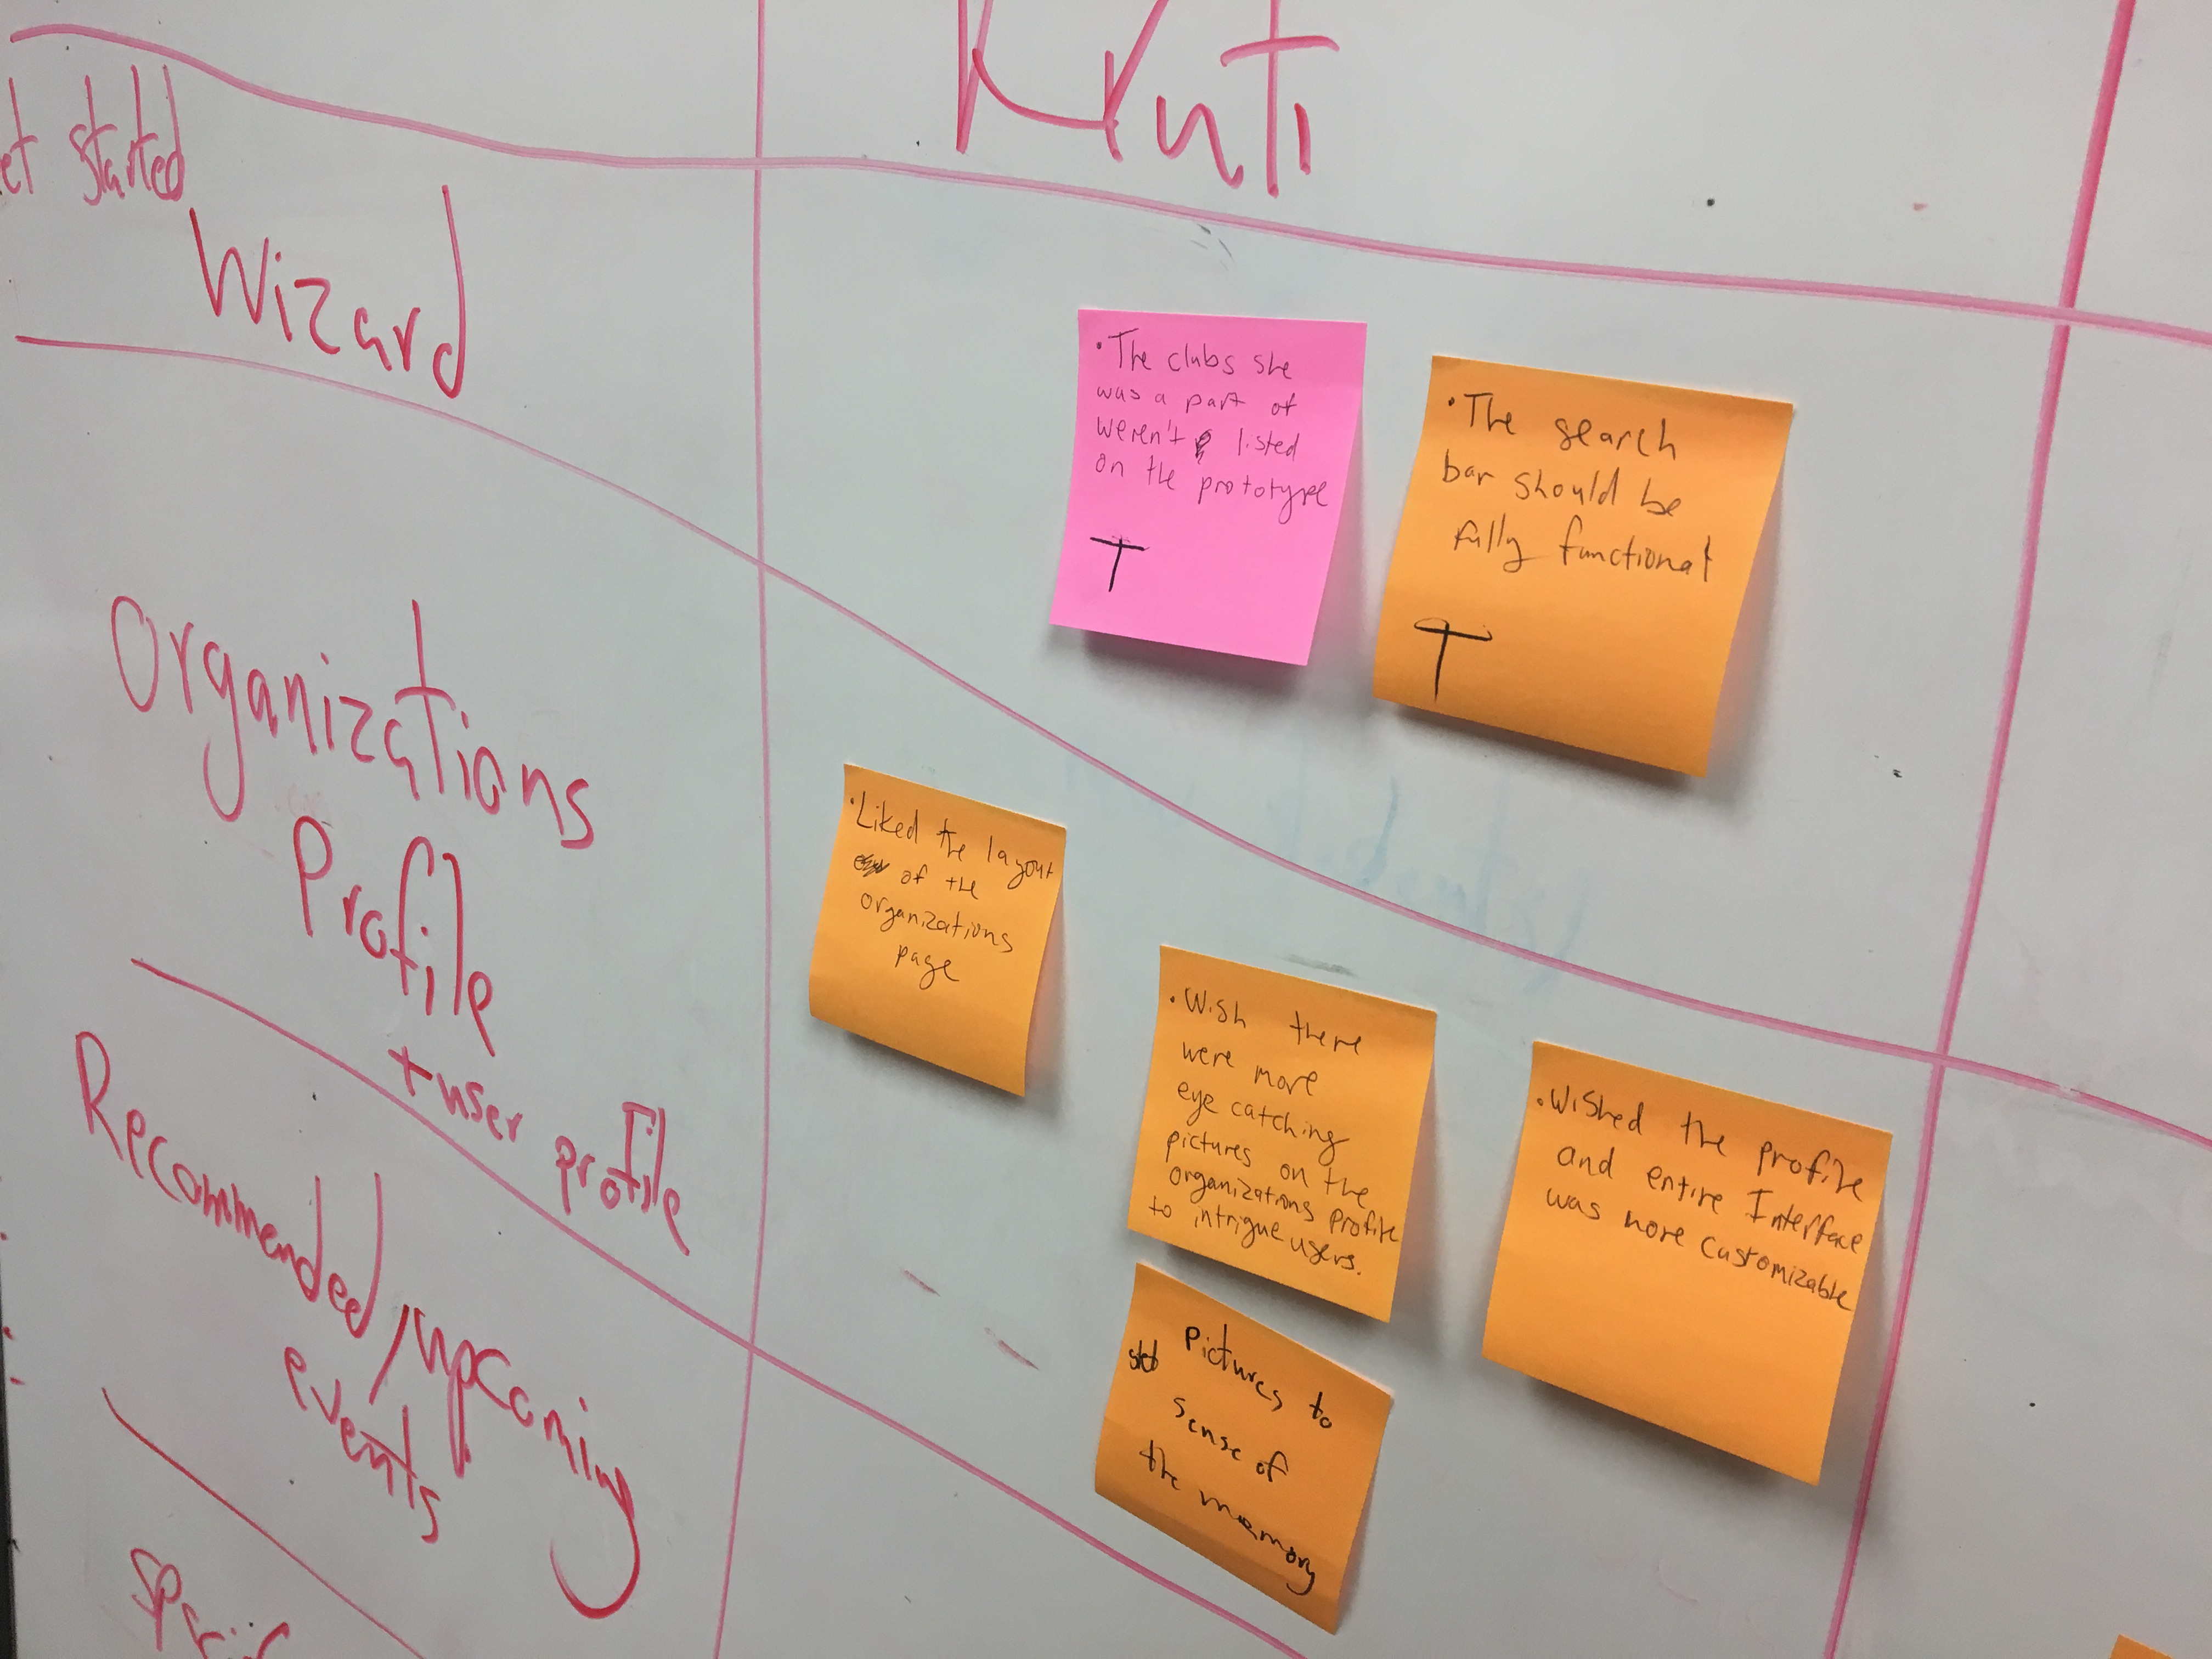 Kruti
et started
Wizard
• The clubs she
was a part of
weren't listed
on the prototype
T
• The search
bar should be
fully functional
T
Organizations
Profile
+ user profile
• Liked the layout
of the
organizations
page
• Wish there
were more
eye catching
pictures on the
organizations profile
to intrigue users.
• Wished the profile
and entire Interface
was more customizable
Pictures to
sense of
the memory
Recommended/upcoming
events